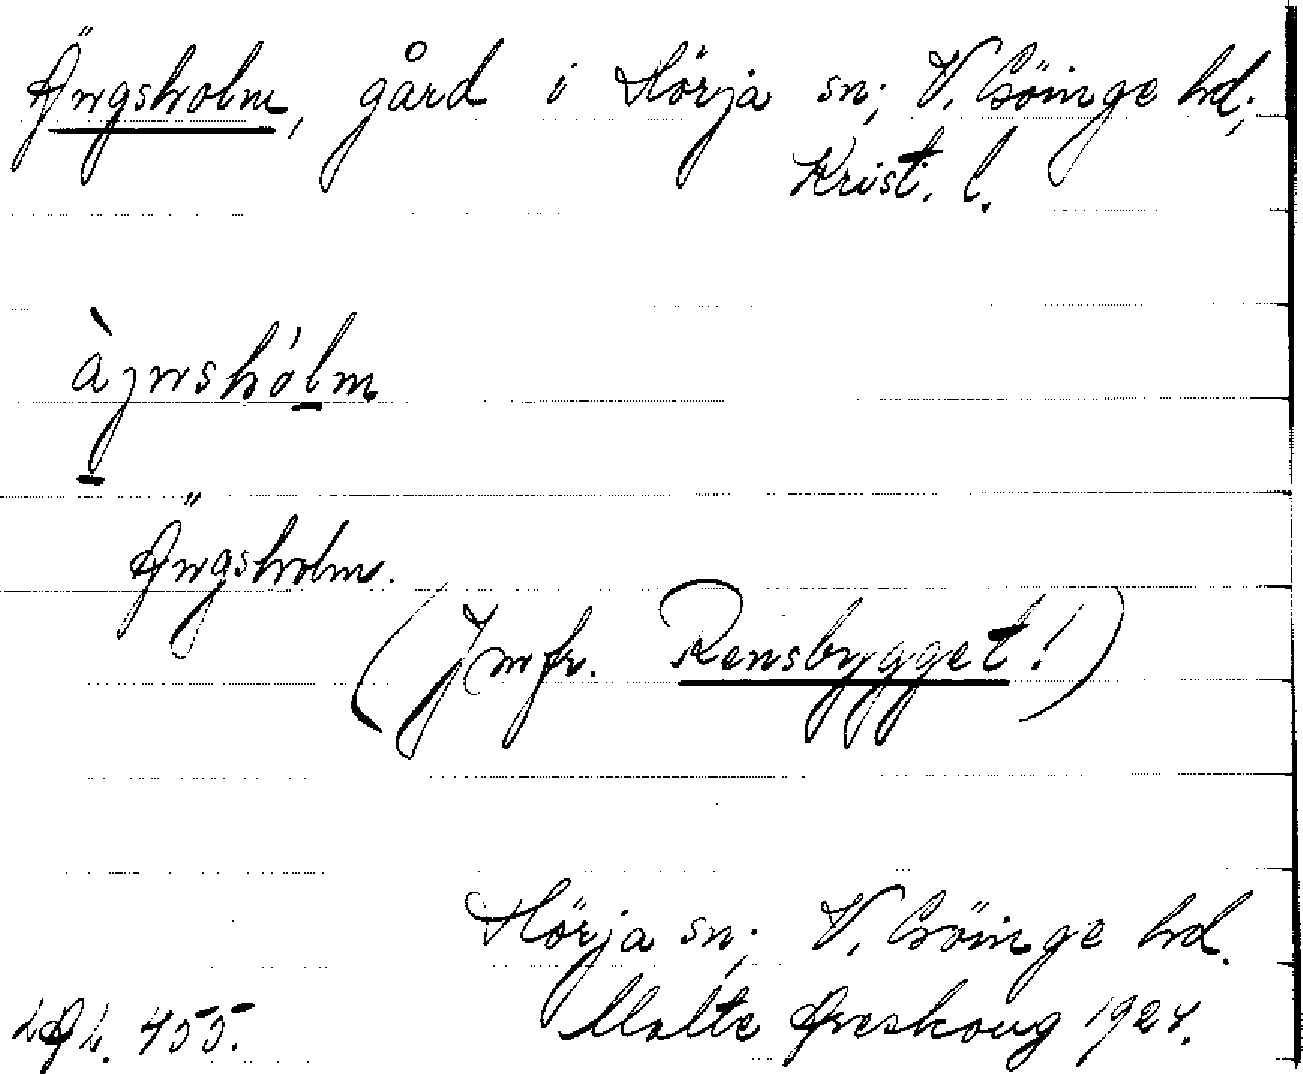 Ängsholm, gård i Hörja sn; V. Göinge hd;
Krist. l.
Ängsholm.
(Jmfr. Rensbygget!)
Hörja sn; V. Göinge hd.
Malte Areskoug 1924.
455.